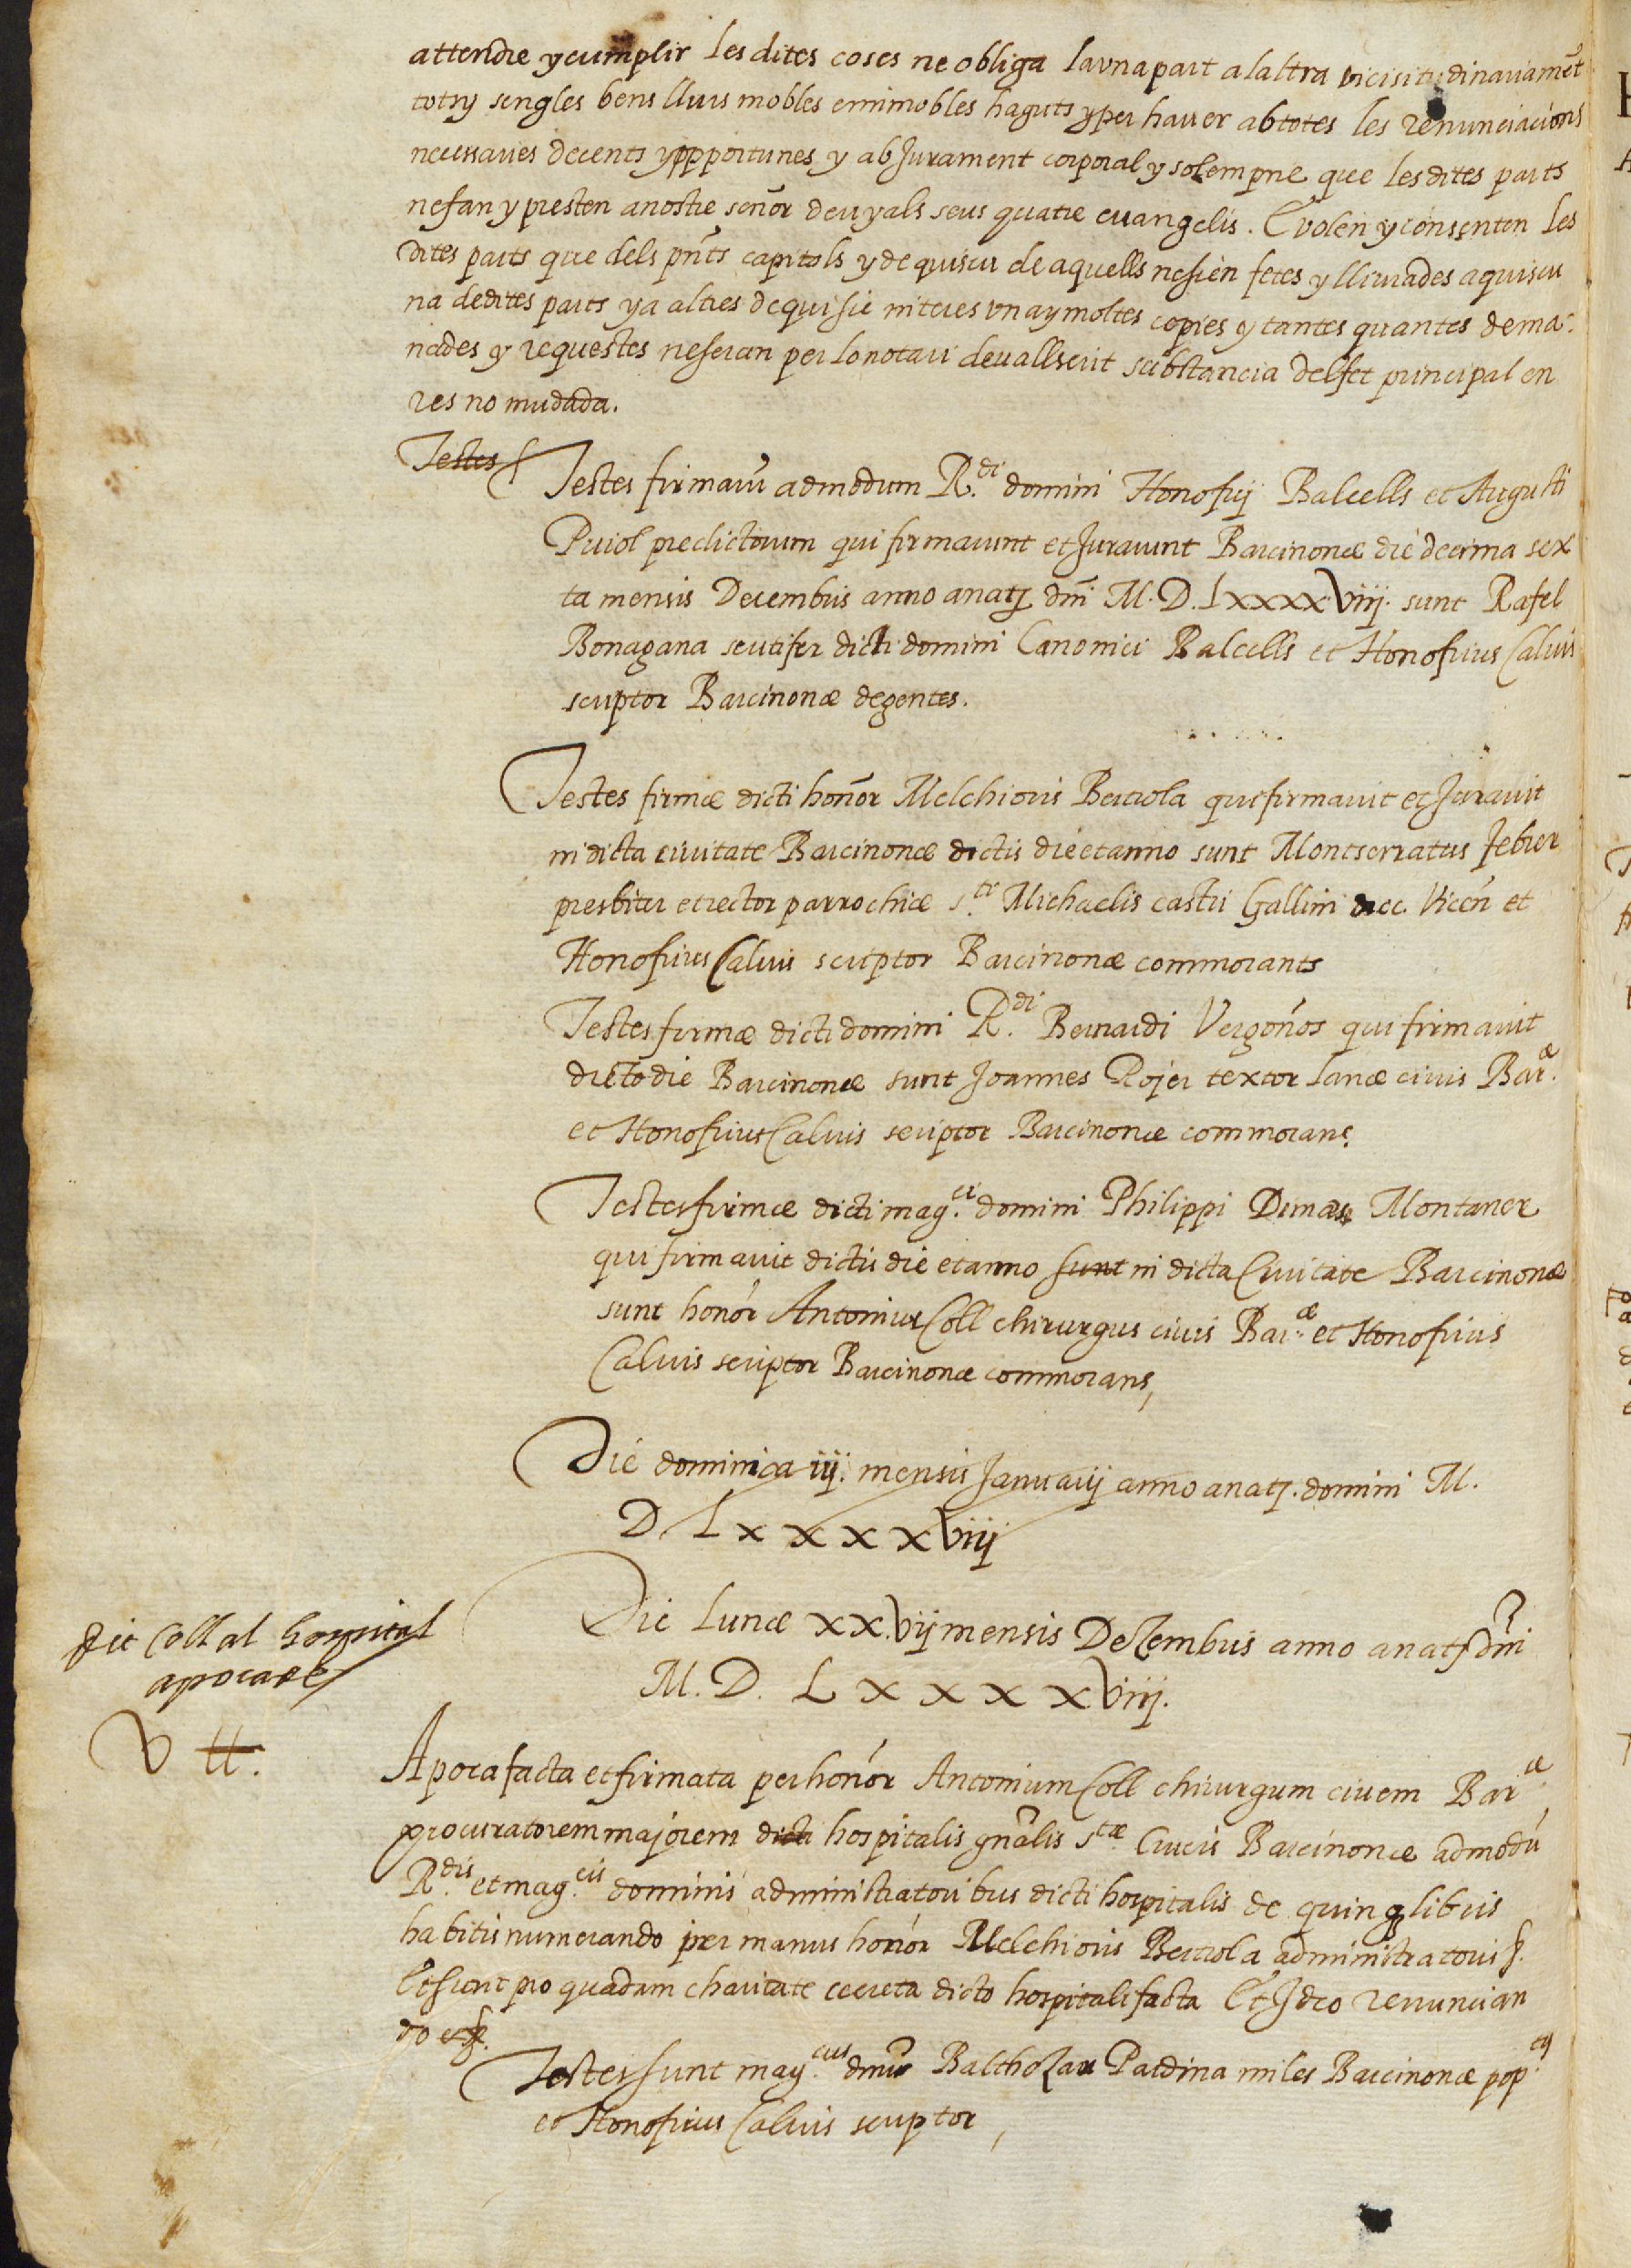 attendre y cumplir les dites coses ne obliga la una part a la altra vicisitudinariamēt
tots y sengles bens llurs mobles e immobles haguts y per haver ab totes les renunciacions
necessaries decents y opportunes y ab jurament corporal y solempne que les dites parts
ne fan y presten a nostre señor deu y als seus quatre evangelis. E volen y consenten les
dites parts que dels pn̄ts capitols y de quiscu de aquells ne sien fetes y lliurades a quiscu
na de dites parts y a altres de qui sie interes una y moltes copies y tantes quantes dema:
nades y requestes ne seran per lo notari devall scrit substancia del fet principal en
res no mudada.
Testes
Testes firmarū admodum R.di domini Honofrij Balcells et Augusti
Puiol predictorum qui firmarunt et Jurarunt Barcinonæ die decima sex
ta mensis Decembris anno a natj dnī M. D. LxxxxViiij. sunt Rafel
Bonagana scutifer dicti domini Canonici Balcells et Honofrius Calvis
scriptor Barcinonæ degentes.
Testes firmæ dicti honōr Melchioris Bertrola qui firmavit et Juravit
in dicta civitate Barcinonæ dictis die et anno sunt Montserratus Febrer
presbiter et rector parrochiæ s.ti Michaelis castri Gallini diec. Vicēn et
Honofrius Calvis scriptor Barcinonæ commorants
Testes firmæ dicti domini R.di Bernardi Vergoños qui firmavit
dicto die Barcinonæ sunt Joannes Rojer textor lanæ civis Bar.æ
et Honofrius Calvis scriptor Barcinonæ commorans.
Testes firmæ dicti mag.ci domini Philippi Dimas Montaner
qui firmavit dictis die et anno sunt in dicta Civitate Barcinonæ
sunt honōr Antonius Coll chirurgus civis Bar.æ et Honofrius
Calvis scriptor Barcinonæ commorans,
Die dominica iij. mensis Januarij anno a natj. domini M.
D. L x x x x Viiij
Die Lunæ xx.Vij mensis Dezembris anno a natj dnī
M. D. L x x x x Viiij.
fit Coll al hospital
apocare
V tt.
Apoca facta et firmata per honōr Antonium Coll chirurgum civem Bar.æ
procuratorem majorem dicti hospitalis gn̄alis s.tæ Crucis Barcinonæ admodū
R.dis et mag.cis dominis administratoribus dicti hospitalis de quinq libris
habitis numerando per manus honōr Melchioris Bertrola administratoris.
Et sunt pro quadam charitate secreta dicto hospitali facta Et Ideo renuncian
do etc.
Testes sunt mag.cus dnūs Balthozar Pardina miles Barcinonæ pop.
et Honofrius Calvis scriptor,